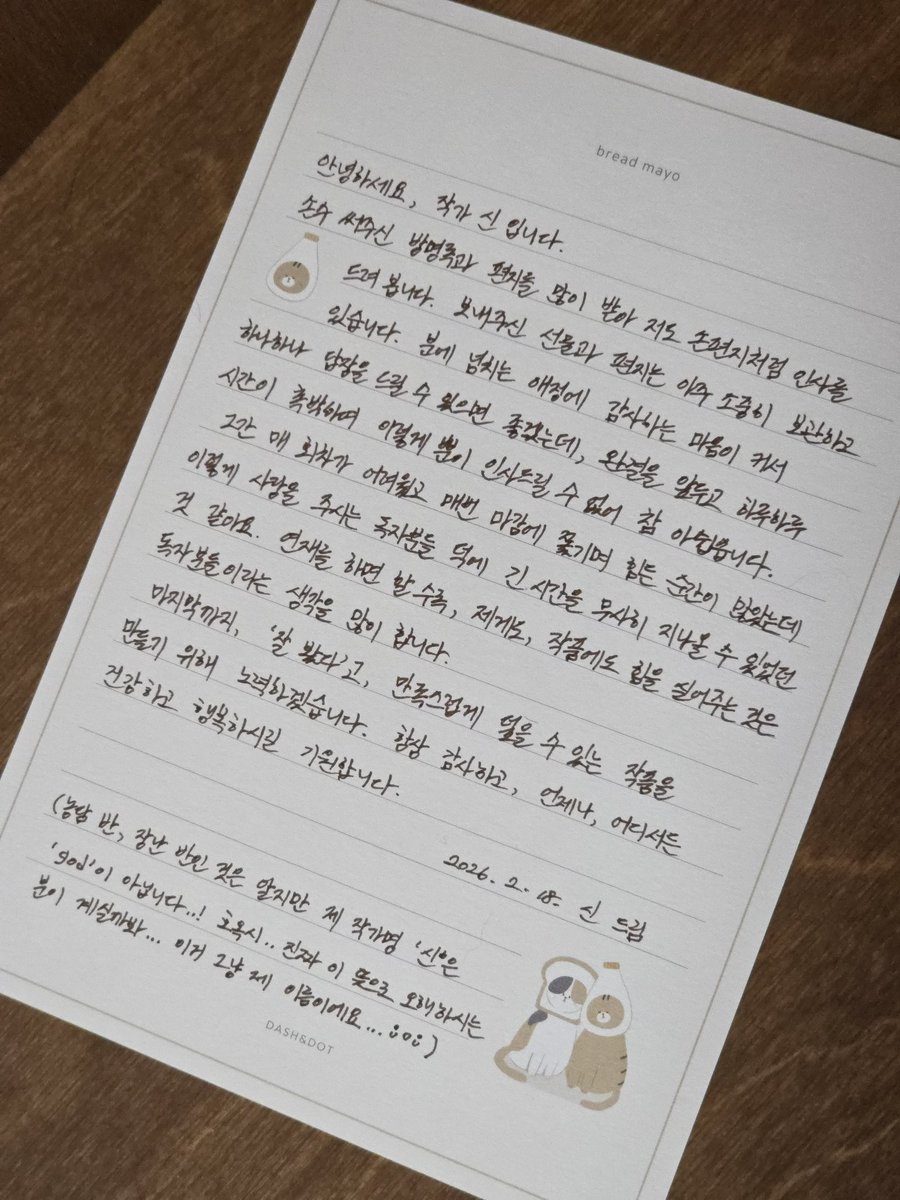 bread mayo
안녕하세요, 작가 신 입니다.
손수 써주신 방명록과 편지를 많이 받아 저도 손편지처럼 인사를
드려 봅니다. 보내주신 선물과 편지는 아주 소중히 보관하고
있습니다. 분에 넘치는 애정에 감사하는 마음이 커서
하나하나 답장을 드릴 수 있으면 좋겠는데, 완결을 앞두고 하루하루
시간이 촉박하여 이렇게 뿐이 인사드릴 수 없어 참 아쉽습니다.
그간 매 회차가 어려웠고 매번 마감에 쫓기며 힘든 순간이 많았는데
이렇게 사랑을 주시는 독자분들 덕에 긴 시간을 무사히 지나올 수 있었던
것 같아요. 연재를 하면 할 수록, 제게도, 작품에도 힘을 실어주는 것은
독자분들이라는 생각을 많이 합니다.
마지막까지, '잘 봤다'고, 만족스럽게 덮을 수 있는 작품을
만들기 위해 노력하겠습니다. 항상 감사하고, 언제나, 어디서든
건강하고 행복하시길 기원합니다.
2026. 2. 18. 신 드림
(농담 반, 장난 반인 것은 알지만 제 작가명 '신'은
'god'이 아닙니다..! 혹시.. 진짜 이 뜻으로 오해하시는
분이 계실까봐... 이거 그냥 제 이름이에요...)
DASH&DOT